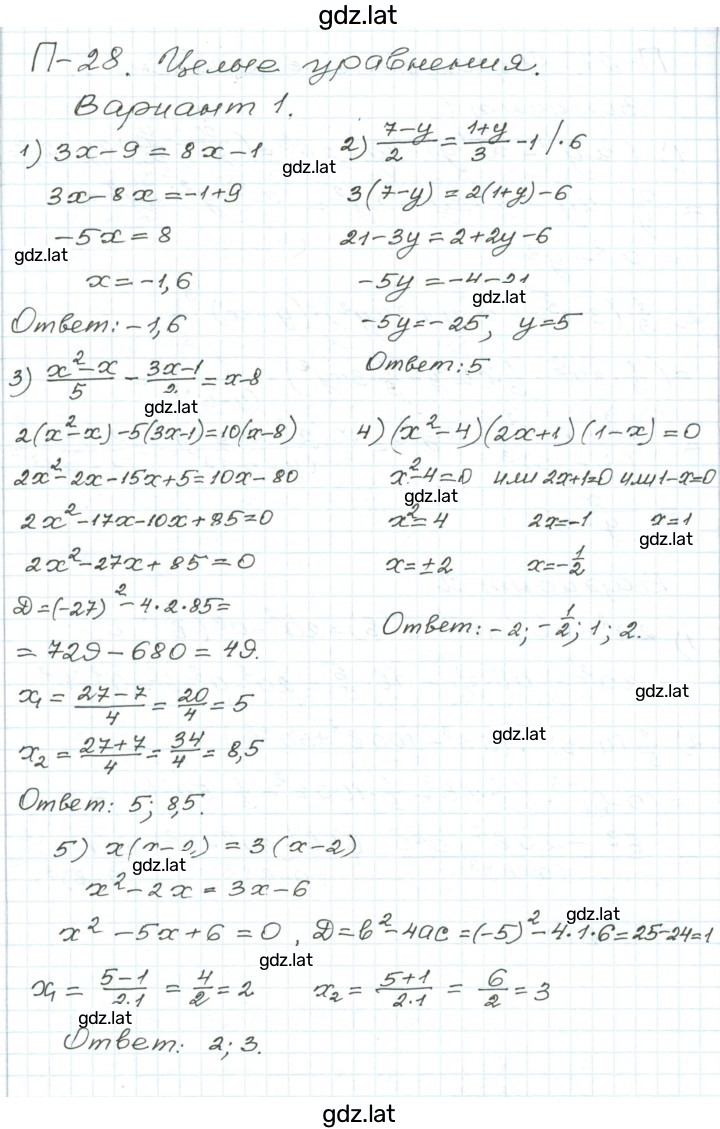 gdz.lat
П-28. Целые уравнения.
Вариант 1.
1) 3x-9=8x-1
3x-8x=-1+9
-5x=8
x=-1,6
Ответ: -1,6
2) (7-y)/2 = (1+y)/3 - 1 /·6
3(7-y)=2(1+y)-6
21-3y=2+2y-6
-5y=-4-21
-5y=-25, y=5
Ответ: 5
3) (x²-x)/5 - (3x-1)/2 = x-8
2(x²-x)-5(3x-1)=10(x-8)
2x²-2x-15x+5=10x-80
2x²-17x-10x+85=0
2x²-27x+85=0
D=(-27)²-4·2·85=
=729-680=49.
x₁ = (27-7)/4 = 20/4 = 5
x₂ = (27+7)/4 = 34/4 = 8,5
Ответ: 5; 8,5.
4) (x²-4)(2x+1)(1-x)=0
x²-4=0 или 2x+1=0 или 1-x=0
x²=4 2x=-1 x=1
x=±2 x=-1/2
Ответ: -2; -1/2; 1; 2.
5) x(x-2) = 3(x-2)
x²-2x=3x-6
x²-5x+6=0, D=b²-4ac=(-5)²-4·1·6=25-24=1
x₁ = (5-1)/(2·1) = 4/2 = 2 x₂ = (5+1)/(2·1) = 6/2 = 3
Ответ: 2; 3.
gdz.lat
gdz.lat
gdz.lat
gdz.lat
gdz.lat
gdz.lat
gdz.lat
gdz.lat
gdz.lat
gdz.lat
gdz.lat
gdz.lat
gdz.lat